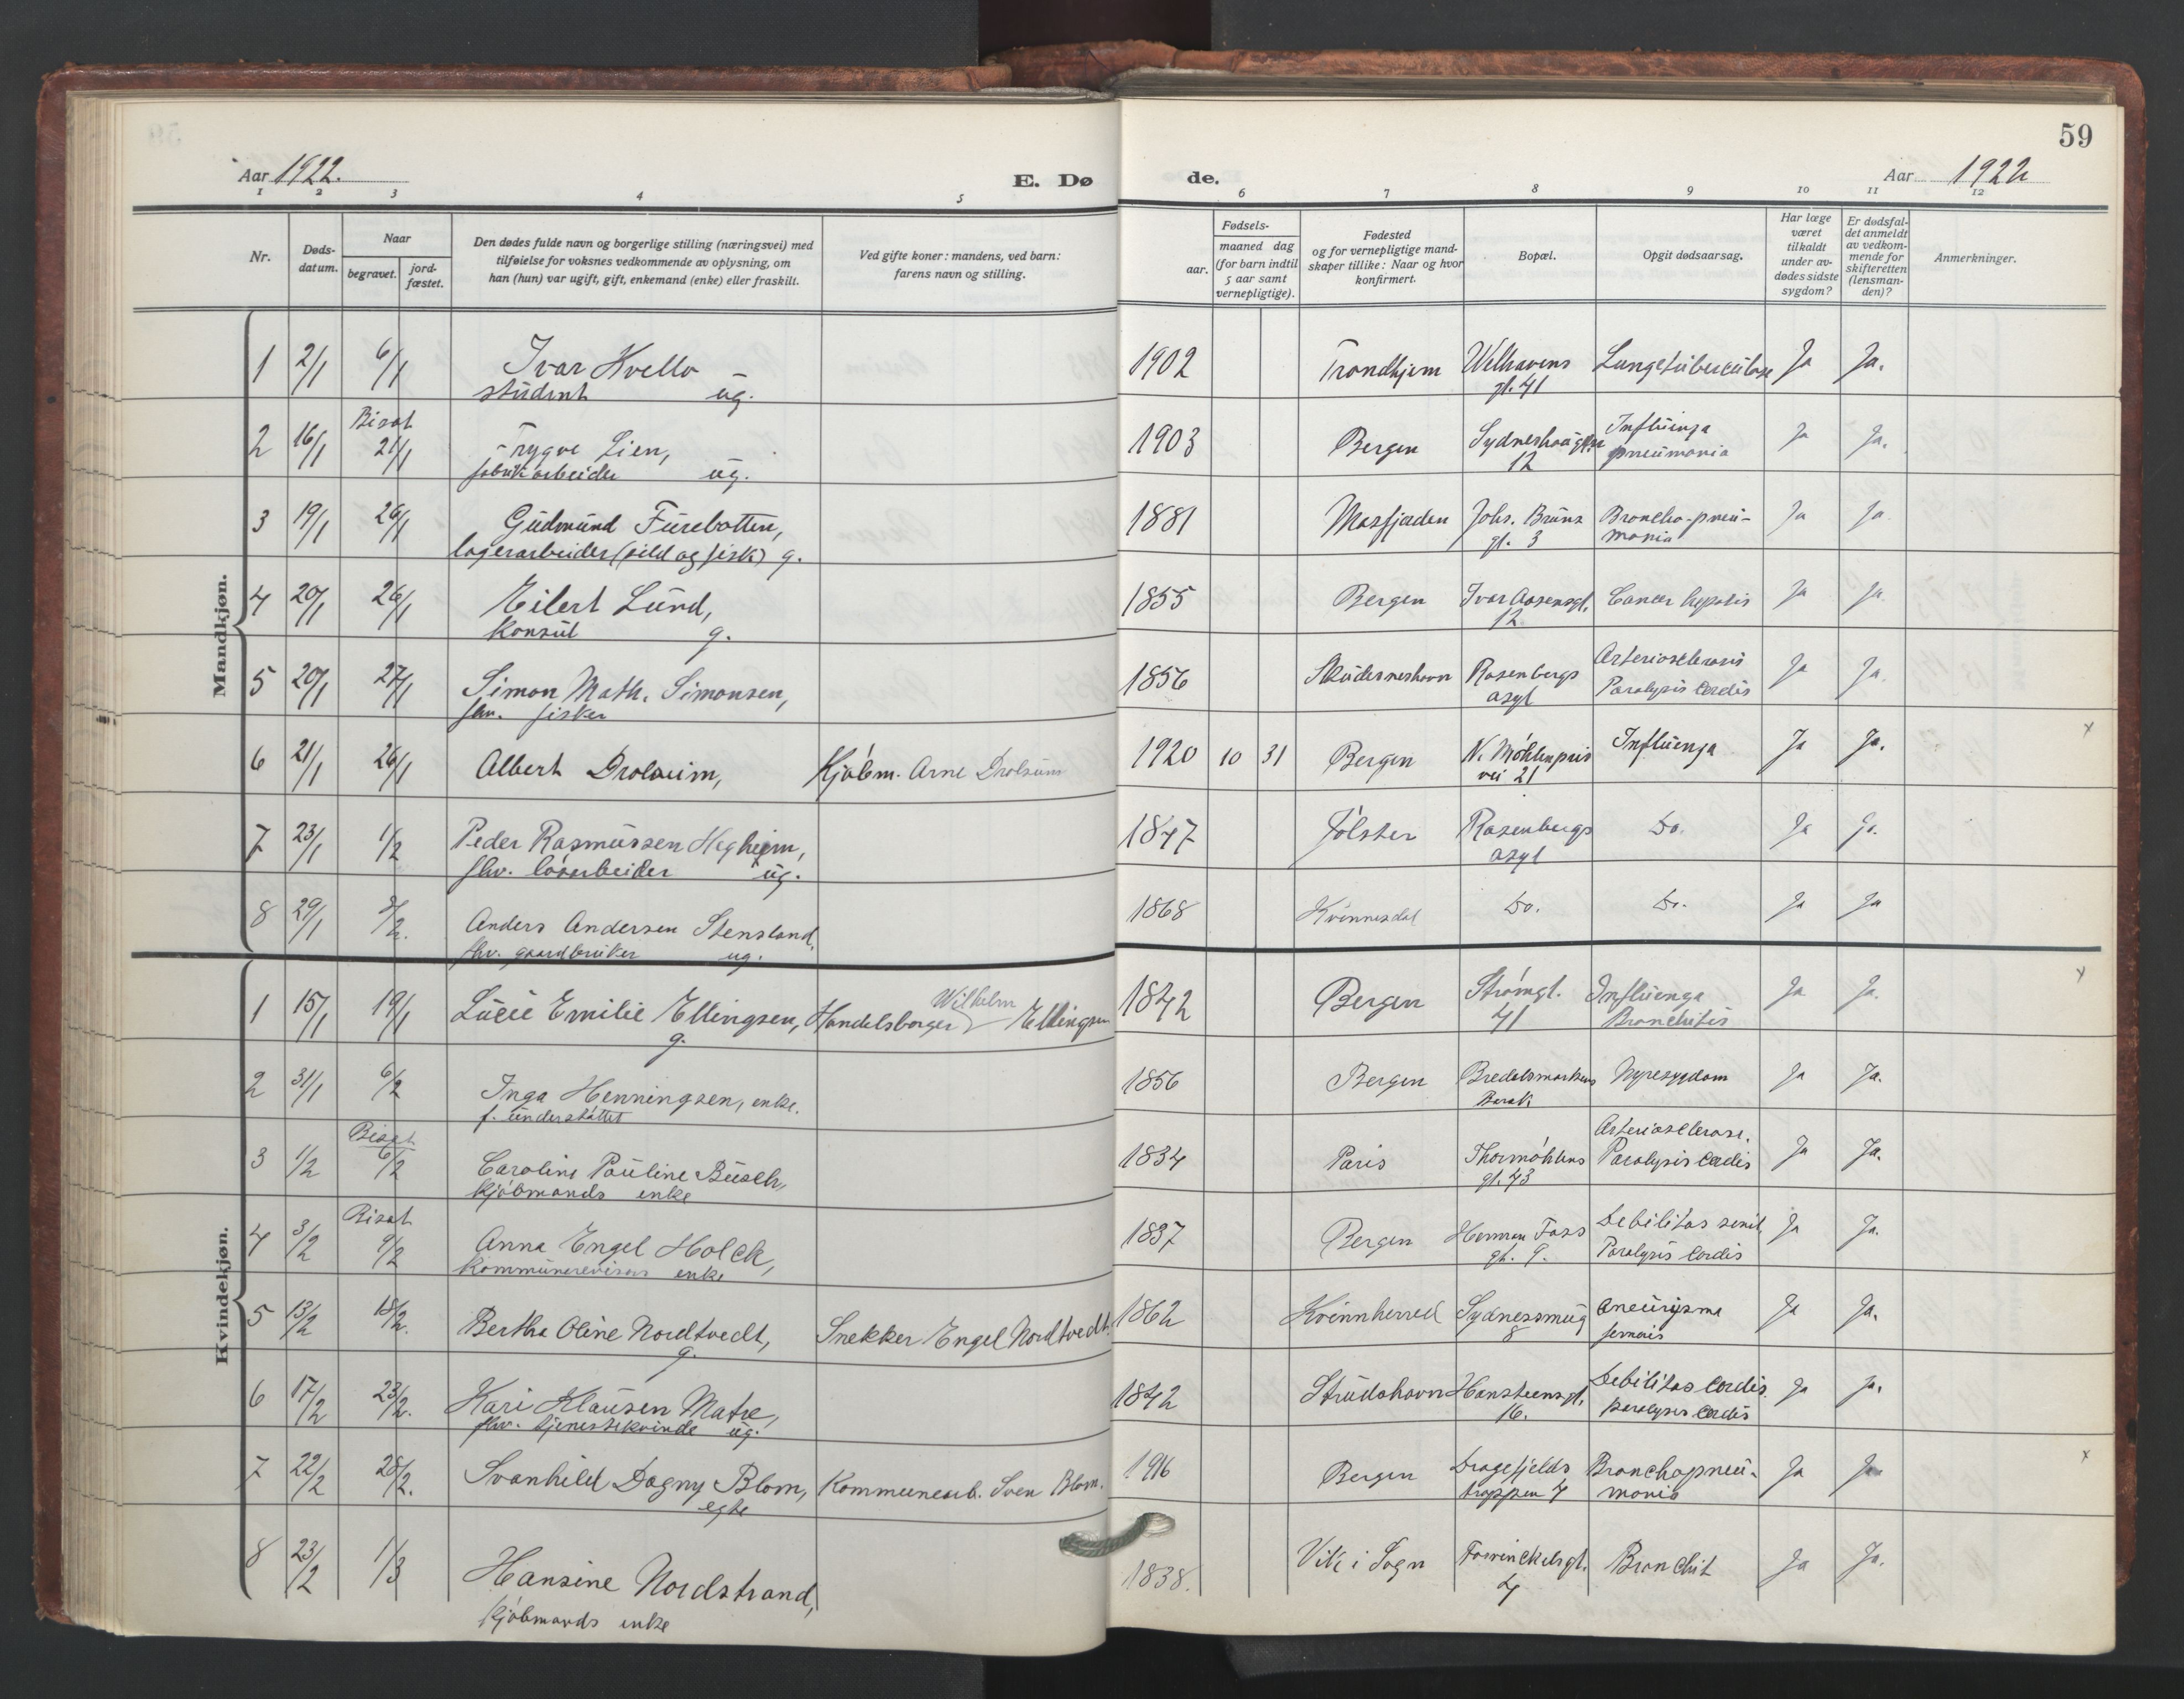 59
Aar 1922.
E. Dø
de.
Aar 1922
1 2 3 4 5 6 7 8 9 10 11 12
Nr.
Døds-
datum.
Naar
begravet.
jord-
fæstet.
Den dødes fulde navn og borgerlige stilling (næringsvei) med
tilføielse for voksnes vedkommende av oplysning, om
han (hun) var ugift, gift, enkemand (enke) eller fraskilt.
Ved gifte koner: mandens, ved barn:
farens navn og stilling.
Fødsels-
aar.
maaned dag
(for barn indtil
5 aar samt
vernepligtige).
Fødested
og for vernepligtige mand-
skaper tillike: Naar og hvor
konfirmert.
Bopæl.
Opgit dødsaarsag.
Har læge
været
tilkaldt
under av-
dødes sidste
sygdom?
Er dødsfal-
det anmeldt
av vedkom-
mende for
skifteretten
(lensman-
den)?
Anmerkninger.
Mandkjøn.
1 2/1 6/1 Ivar Kvello 1902 Trondhjem Welhavens Lungetuberculose Ja Ja.
student ug. gt. 41
Bisat
2 16/1 21/1 Trygve Lien, 1903 Bergen Sydneshaugen Influenza Ja Ja.
fabrikarbeider ug. 12 pneumonia
3 19/1 26/1 Gudmund Furebotten, 1881 Masfjorden Johs. Bruns Broncho-pneu- Ja Ja
lagerarbeider (sild og fisk) g. gt. 3 monia
4 20/1 26/1 Eilert Lund, 1855 Bergen Ivar Aasensgt. Cancer hepatis Ja Ja.
Konsul g. 12
5 20/1 27/1 Simon Math. Simonsen, 1856 Skudesneshavn Rosenbergs Arteriosclerosis Ja Ja.
fhv. fisker asyl Paralysis cordis
6 21/1 26/1 Albert Drolsum, Kjøbm. Arne Drolsum 1920 10 31 Bergen N. Møhlenpris Influenza Ja Ja. x
vei 21
7 23/1 1/2 Peder Rasmussen Hegheim, 1847 Jølster Rosenbergs Do. Ja Ja.
fhv. løsarbeider ug. asyl
8 29/1 3/2. Anders Andersen Stensland, 1868 Kvinnesdal Do. Do. Ja Ja
fhv. gaardbruker ug.
Kvindekjøn.
1 15/1 19/1 Lucie Emilie Ellingsen, Handelsborger Wilhelm Ellingsen 1842 Bergen Strømgt. Influenza Ja Ja. x
g. 41 Bronchitis
2 31/1 6/2 Inga Henningsen, enke. 1856 Bergen Bredalsmarkens Nyresygdom Ja Ja.
f. understøttet Barak
Bisat
3 1/2 6/2 Caroline Pauline Busch, 1834 Paris Thormøhlens Arteriosclerose. Ja Ja.
kjøbmands enke gt. 43 Paralysis cordis
Bisat
4 3/2 9/2 Anna Engel Holck, 1837 Bergen Herman Foss Debilitas senil. Ja Ja.
Kommunerevisors enke gt. 9. Paralysis cordis
5 13/2 18/2. Bertha Oline Nordtvedt, Snekker Engel Nordtvedt. 1862 Kvinnherred Sydnessmug Aneurysma Ja Ja.
g. 8
6 17/2 23/2. Kari Klausen Matre, 1842 Strudshavn Hansteensgt. Debilitas cordis. Ja Ja.
fhv. tjenestekvinde ug. 16. paralysis cordis
7 22/2 28/2. Svanhild Dagny Blom, Kommunearb. Sven Blom. 1916 Bergen Dragefjelds Bronchopneu- Ja Ja x
egte trappen 4 monia
8 23/2 1/3 Hansine Nordstrand, 1838. Vik i Sogn Foswinckelsgt. Bronchit Ja Ja.
kjøbmands enke 4